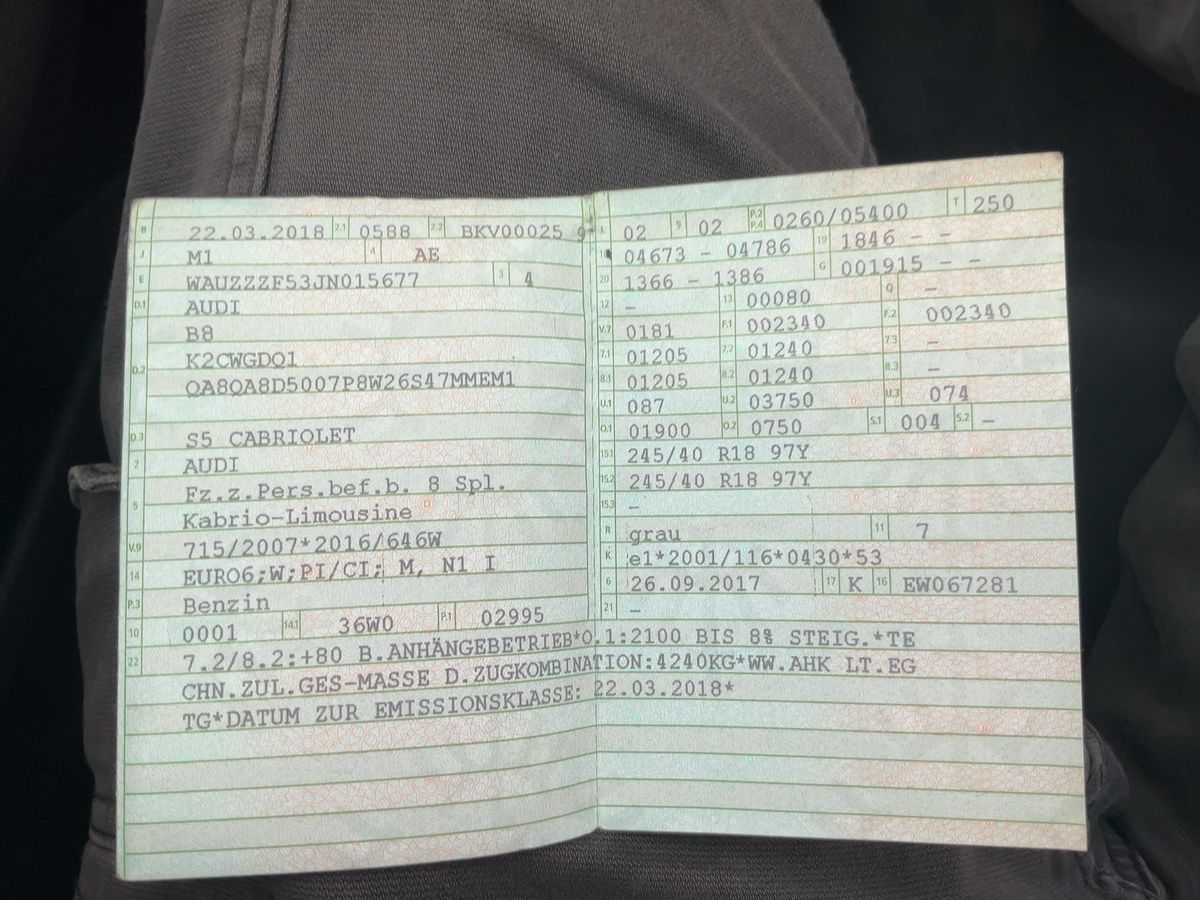 B 22.03.2018 2.1 0588 2.2 BKV00025 9
J M1 4 AE
E WAUZZZF53JN015677 3 4
D.1 AUDI
B8
D.2 K2CWGDQ1
QA8QA8D5007P8W26S47MMEM1
D.3 S5 CABRIOLET
2 AUDI
5 Fz.z.Pers.bef.b. 8 Spl.
Kabrio-Limousine
V.9 715/2007*2016/646W
14 EURO6;W;PI/CI; M, N1 I
P.3 Benzin
10 0001 14.1 36W0 P.1 02995
L 02 9 02 P.2 P.4 0260/05400 T 250
18 04673 - 04786 19 1846 - -
20 1366 - 1386 G 001915 - -
12 - 13 00080 Q -
V.7 0181 F.1 002340 F.2 002340
7.1 01205 7.2 01240 7.3 -
8.1 01205 8.2 01240 8.3 -
U.1 087 U.2 03750 U.3 074
O.1 01900 O.2 0750 S.1 004 S.2 -
15.1 245/40 R18 97Y
15.2 245/40 R18 97Y
15.3 -
R grau 11 7
K e1*2001/116*0430*53
6 26.09.2017 17 K 16 EW067281
21 -
22 7.2/8.2:+80 B.ANHÄNGEBETRIEB*O.1:2100 BIS 8% STEIG.*TE
CHN.ZUL.GES-MASSE D.ZUGKOMBINATION:4240KG*WW.AHK LT.EG
TG*DATUM ZUR EMISSIONSKLASSE: 22.03.2018*